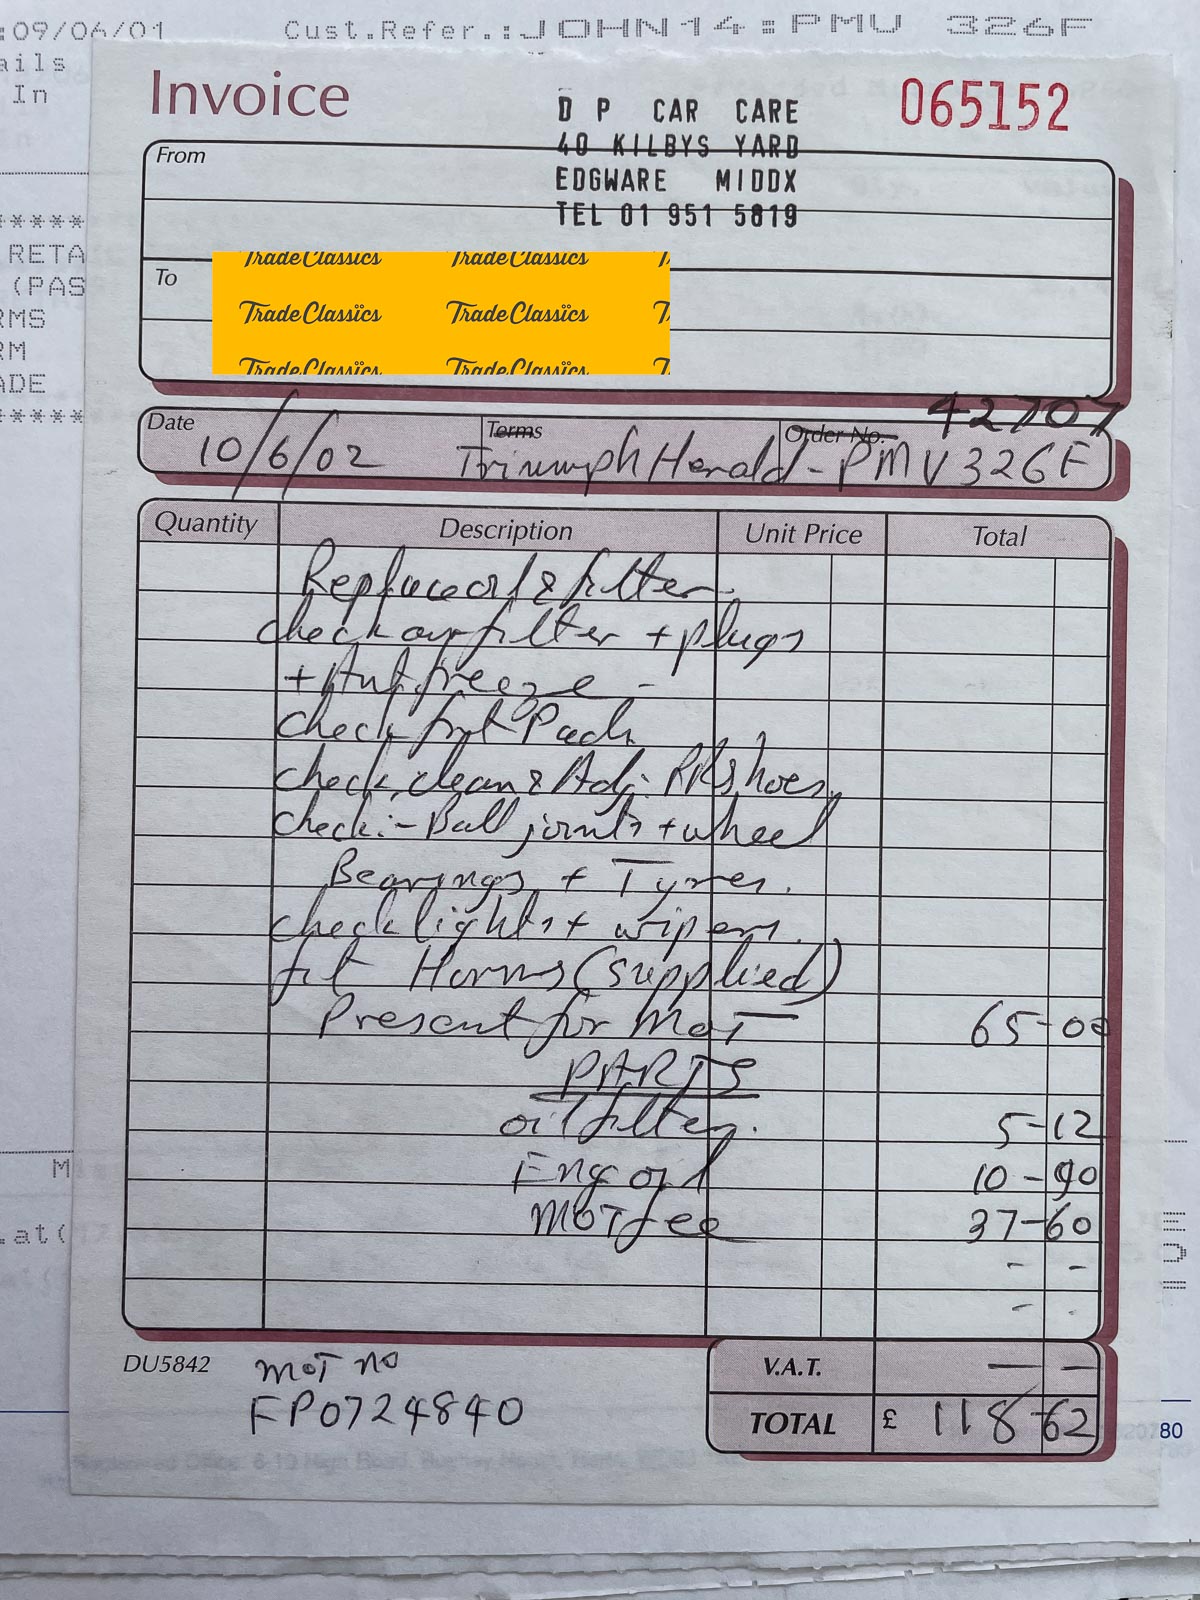 :09/06/01 Cust.Refer.:JOHN14:PMV 326F
ails
In
Invoice
D P CAR CARE
40 KILBYS YARD
EDGWARE MIDDX
TEL 01 951 5819
065152
From
*****
RETA
(PAS
RMS
RM
ADE
*****
To
TradeClassics TradeClassics
TradeClassics TradeClassics
TradeClassics TradeClassics
42707
Date Terms Order No.
10/6/02 Triumph Herald - PMV326F
Quantity Description Unit Price Total
Replace oil & filter.
check air filter + plugs
+ Antifreeze -
check frt Pads
check, clean & Adj: RR shoes,
check:- Ball joints + wheel
Bearings + Tyres.
check lights + wipers.
fit Horns (supplied)
Present for MOT 65-00
PARTS
oil filter. 5-12
Eng oil 10-90
MOT fee 37-60
- -
- -
.at(
DU5842
MOT no
FP0724840
V.A.T. — —
TOTAL £ 118-62
80